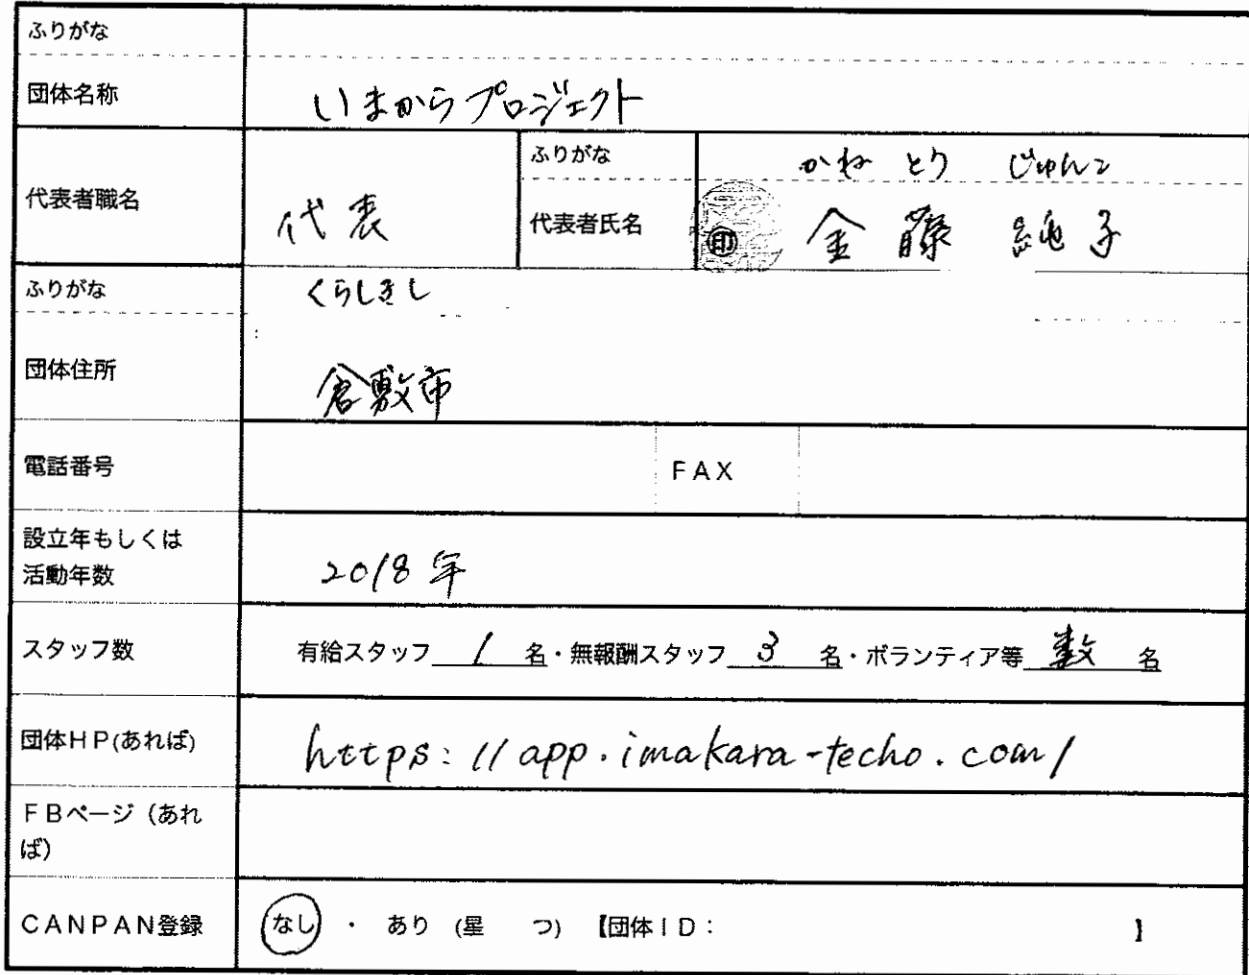 ふりがな
団体名称 いまからプロジェクト
代表者職名 代表
ふりがな かねとう じゅんこ
代表者氏名 ㊞ 金藤 純子
ふりがな くらしきし
団体住所 倉敷市
電話番号 FAX
設立年もしくは
活動年数 2018年
スタッフ数 有給スタッフ 1 名・無報酬スタッフ 3 名・ボランティア等 数 名
団体HP(あれば) https://app.imakara-techo.com/
FBページ(あれ
ば)
CANPAN登録 なし ・ あり (星 つ) 【団体ID: 】